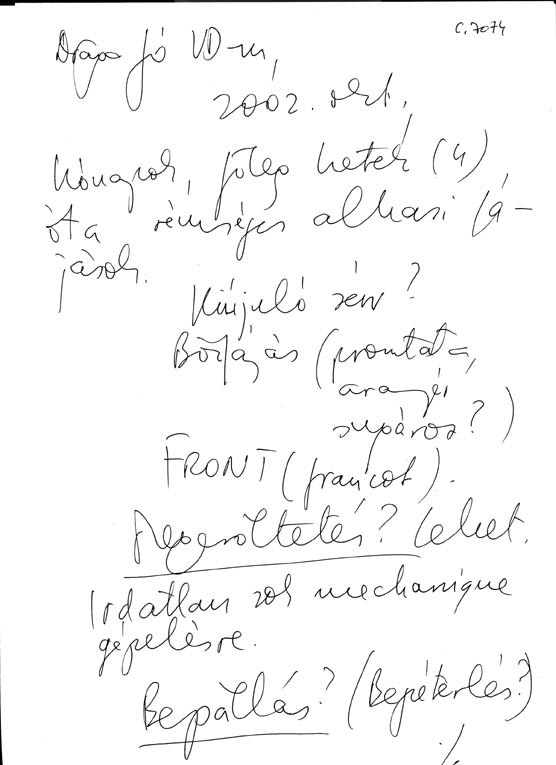 C. 7074
Drága jó VD-m,
2002. okt.
hónapok, főleg hetek (4)
óta rémséges alhasi fá-
jások.
Kiújuló sérv?
Bőrfájás (prosztata,
aranyér
?)
FRONT (francot).
Megerőltetés? Lehet.
Irdatlan sok mechanique
gépelésre.
Bepállás? (Bepéterlés?)
./.